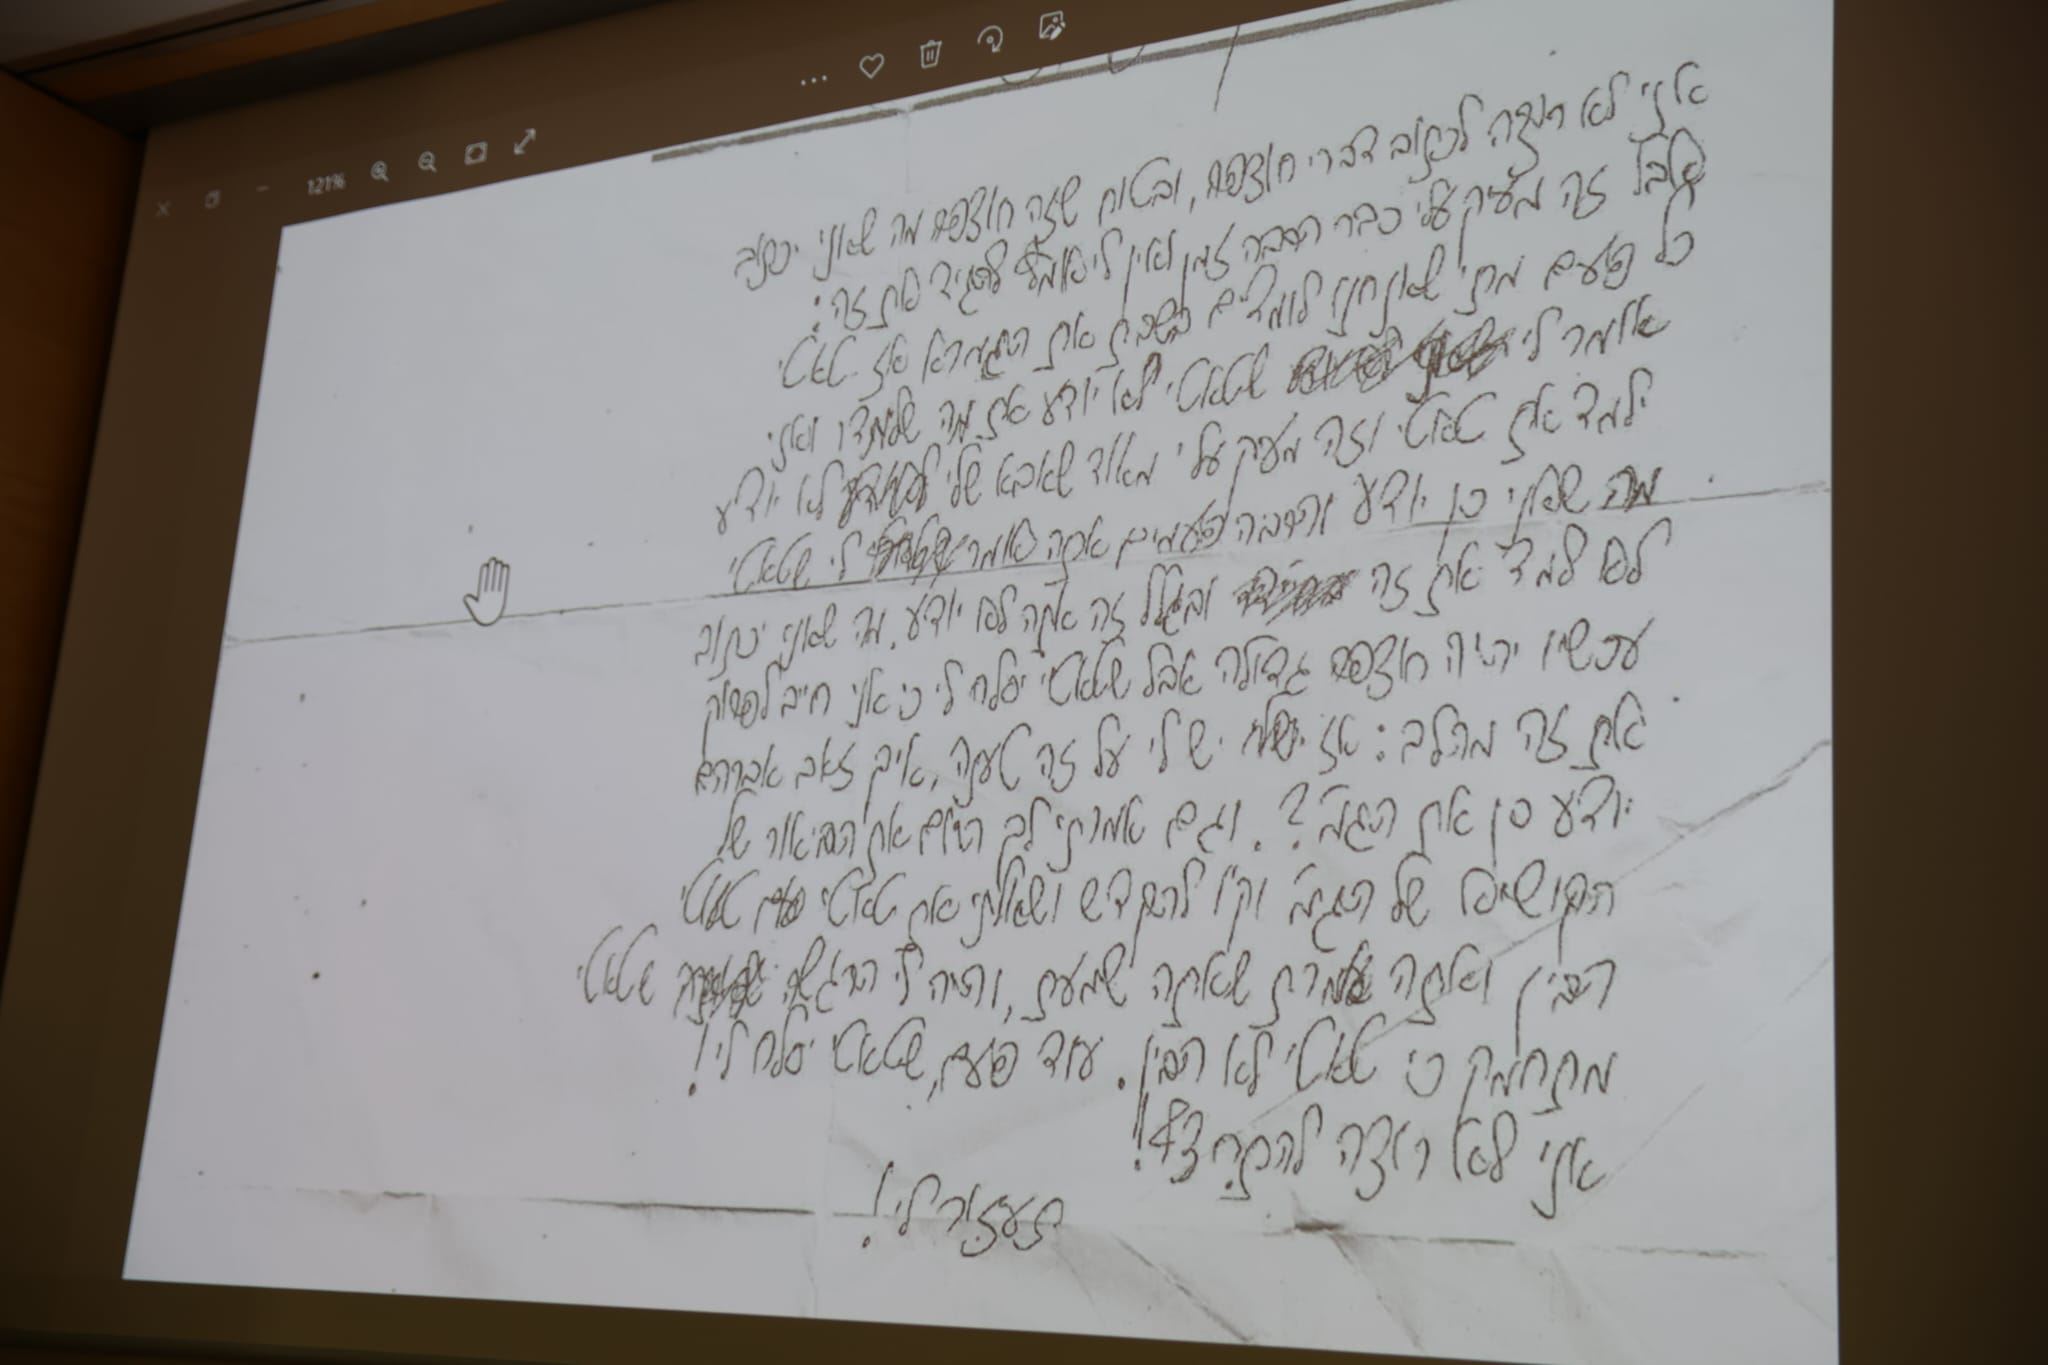 121%
אני לא רוצה לכתוב דברי חוצפה, ובטוח שזה חוצפה מה שאני יכתוב
אבל זה מעיק עלי כבר הרבה זמן ואין לי אומץ להגיד את זה:
כל פעם מתי שאנחנו לומדים בשבת את הגמרא אז טאטי
אומר לי שטאטי לא יודע את מה שלמדו ואני
ילמד את טאטי וזה מעיק עלי מאוד שאבא שלי לא יודיע
מה שאני כן יודע והרבה פעמים אתה אומר לי שטאטי
לא למד את זה ובגלל זה אתה לא יודיע, מה שאני יכתוב
עכשיו יהיה חוצפה גדולה אבל שטאטי יסלח לי כי אני חייב לפרוק
את זה מהלב: אז יש לי על זה טענה, איך זאב אברהם
יודע כן את הגמ'?. וגם אמרתי לב היום את הביאור של
הקושיא של הגמ' וק"ו להקדש ושאלתי את טאטי טאטי
הבין ואתה אמרת שאתה שמעת, והיה לי הרגשה שטאטי
מתחמק כי טאטי לא הבין. עוד פעם, שטאטי יסלח לי!
אני לא רוצה להתחצף!!
תעזור לי!